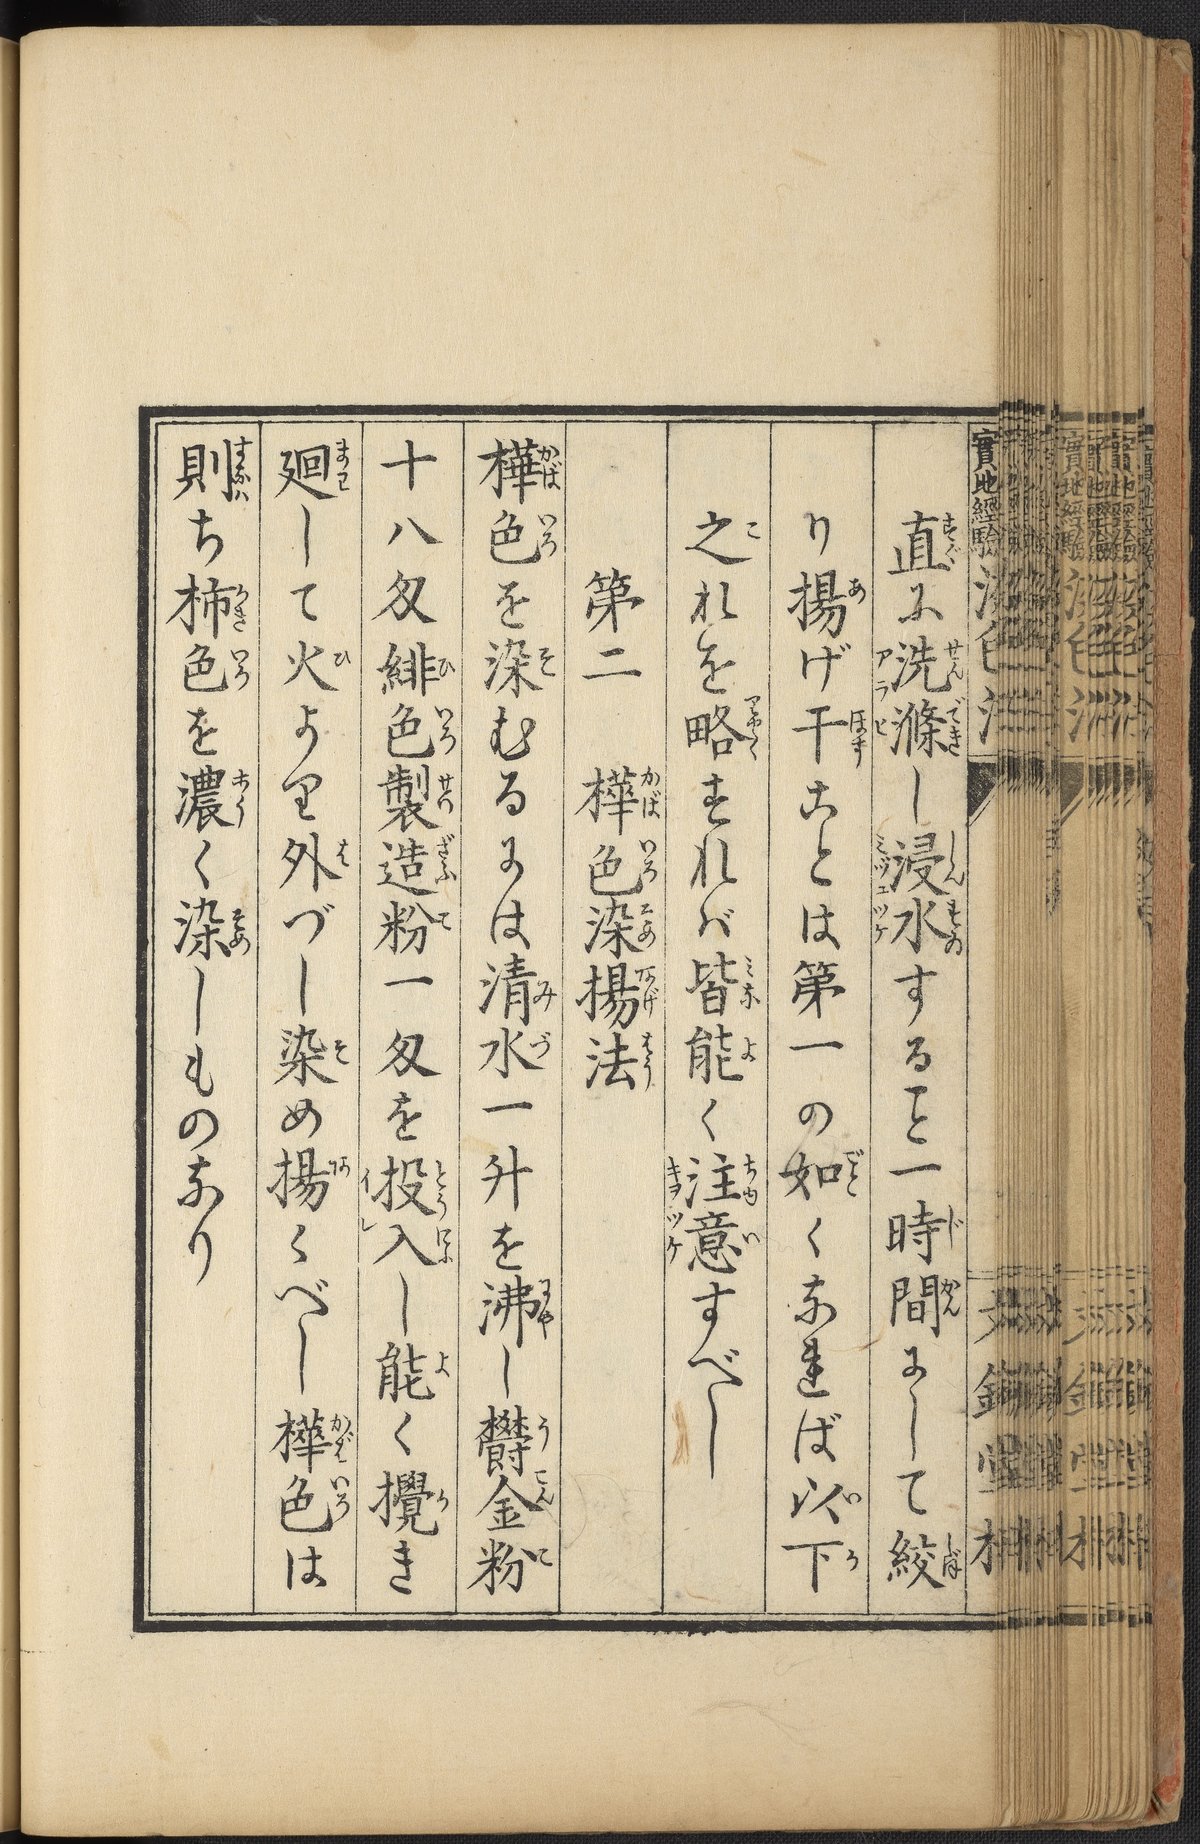 直に洗滌し浸水すること一時間にして絞
り揚げ干ことは第一の如くなれば以下
之れを略すれば皆能く注意すべし
第二　樺色染揚法
樺色を染むるには清水一升を沸し欝金粉
十八匁緋色製造粉一匁を投入し能く攪き
廻して火より外づし染め揚くべし樺色は
則ち柿色を濃く染しものなり
實地經驗